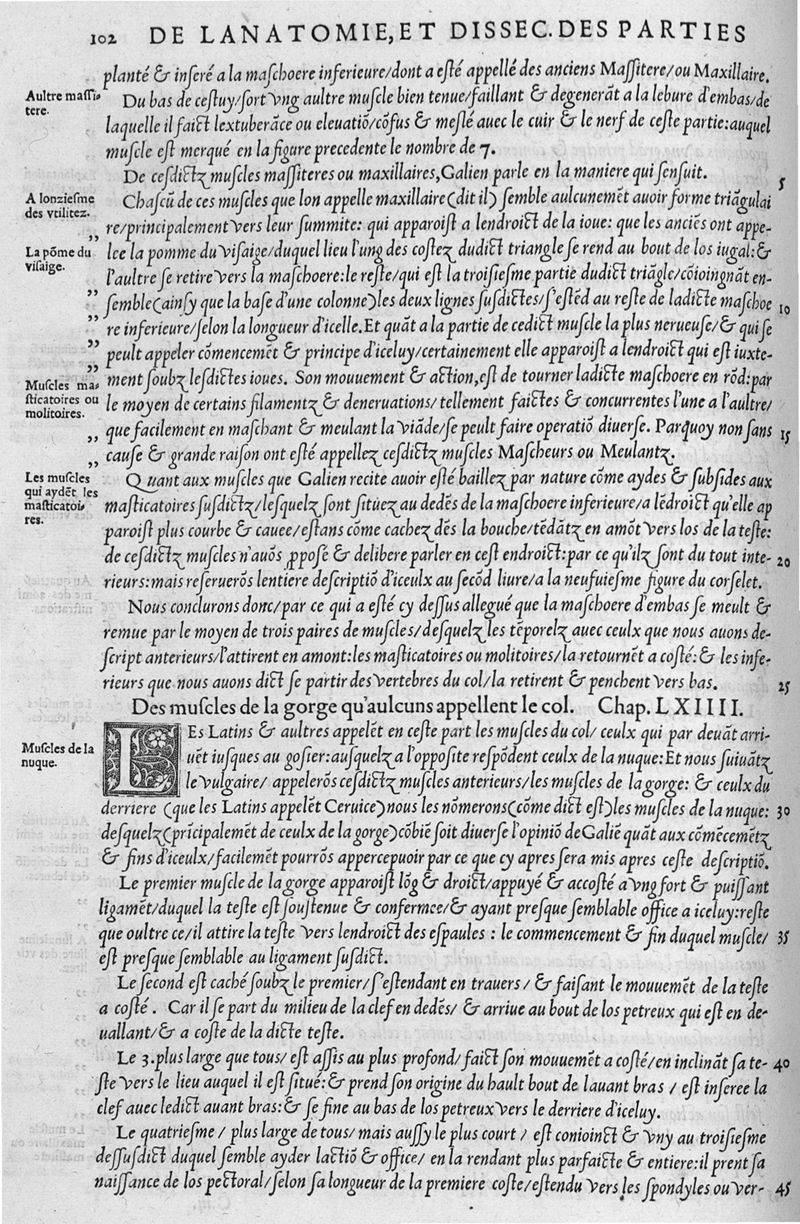 102 DE LANATOMIE, ET DISSEC. DES PARTIES
planté & inseré a la maschoere inferieure/dont a esté appellé des anciens Massitere/ou Maxillaire.
Aultre massi-
tere.
Du bas de cestuy/sort vng aultre muscle bien tenue/saillant & degenerāt a la lebure d'embas/de
laquelle il faict lextuberāce ou eleuatiō/cōfus & meslé auec le cuir & le nerf de ceste partie:auquel
muscle est merqué en la figure precedente le nombre de 7.
De cesdictz muscles massiteres ou maxillaires, Galien parle en la maniere qui sensuit. 5
A lonziesme
des vtilitez.
Chascū de ces muscles que lon appelle maxillaire (dit il) semble aulcunemēt auoir forme triāgulai
re/principalement vers leur summite: qui apparoist a lendroict de la ioue: que les anciēs ont appe-
La pōme du
visaige.
lee la pomme du visaige/duquel lieu l'ung des costez dudict triangle se rend au bout de los iugal:&
l'aultre se retire vers la maschoere:le reste/qui est la troisiesme partie dudict triāgle/cōioingnāt en-
semble (ainsy que la base d'une colonne) les deux lignes susdictes/s'estēd au reste de ladicte maschoe 10
re inferieure/selon la longueur d'icelle. Et quāt a la partie de cedict muscle la plus nerueuse/& qui se
peult appeler cōmencemēt & principe d'iceluy/certainement elle apparoist a lendroict qui est iuxte-
Muscles ma-
sticatoires ou
molitoires.
ment soubz lesdictes ioues. Son mouuement & action, est de tourner ladicte maschoere en rōd:par
le moyen de certains filamentz & deneruations/tellement faictes & concurrentes l'une a l'aultre/
que facilement en maschant & meulant la viāde/se peult faire operatiō diuerse. Parquoy non sans 15
cause & grande raison ont esté appellez cesdictz muscles Mascheurs ou Meulantz.
Les muscles
qui aydēt les
masticatoi-
res.
Quant aux muscles que Galien recite auoir esté baillez par nature cōme aydes & subsides aux
masticatoires susdictz/lesquelz sont situez au dedēs de la maschoere inferieure/a lēdroict qu'elle ap
paroist plus courbe & cauee/estans cōme cachez dēs la bouche/tēdātz en amōt vers los de la teste:
de cesdictz muscles n'auōs ꝓpose & delibere parler en cest endroict:par ce qu'ilz sont du tout inte- 20
rieurs:mais reseruerōs lentiere descriptiō d'iceulx au secōd liure/a la neufuiesme figure du corselet.
Nous conclurons donc/par ce qui a esté cy dessus allegué que la maschoere d'embas se meult &
remue par le moyen de trois paires de muscles/desquelz les tēporelz auec ceulx que nous auons de-
script anterieurs/l'attirent en amont:les masticatoires ou molitoires/la retournēt a costé:& les infe-
rieurs que nous auons dict se partir des vertebres du col/la retirent & penchent vers bas. 25
Des muscles de la gorge qu'aulcuns appellent le col. Chap. LXIIII.
Muscles de la
nuque.
LEs Latins & aultres appelēt en ceste part les muscles du col/ ceulx qui par deuāt arri-
uēt iusques au gosier:ausquelz a l'opposite respōdent ceulx de la nuque:Et nous suiuātz
le vulgaire/ appelerōs cesdictz muscles anterieurs/les muscles de la gorge: & ceulx du
derriere (que les Latins appelēt Ceruice) nous les nōmerons (cōme dict est) les muscles de la nuque: 30
desquelz (prīcipalemēt de ceulx de la gorge) cōbiē soit diuerse l'opiniō de Galiē quāt aux cōmēcemētz
& fins d'iceulx/facilemēt pourrōs appercepuoir par ce que cy apres sera mis apres ceste descriptiō.
Le premier muscle de la gorge apparoist lōg & droict/appuyé & accosté a vng fort & puissant
ligamēt/duquel la teste est soustenue & confermee/& ayant presque semblable office a iceluy:reste
que oultre ce/il attire la teste vers lendroict des espaules : le commencement & fin duquel muscle/ 35
est presque semblable au ligament susdict.
Le second est caché soubz le premier/s'estendant en trauers/ & faisant le mouuemēt de la teste
a costé. Car il se part du milieu de la clef en dedēs/ & arriue au bout de los petreux qui est en de-
uallant/& a coste de la dicte teste.
Le 3. plus large que tous/ est assis au plus profond/faict son mouuemēt a costé/en inclināt sa te- 40
ste vers le lieu auquel il est situé:& prend son origine du hault bout de lauant bras / est inseree la
clef auec ledict auant bras:& se fine au bas de los petreux vers le derriere d'iceluy.
Le quatriesme / plus large de tous/ mais aussy le plus court / est conioinct & vny au troisiesme
dessusdict duquel semble ayder lactiō & office/ en la rendant plus parfaicte & entiere:il prent sa
naissance de los pectoral/selon sa longueur de la premiere coste/estendu vers les spondyles ou ver- 45